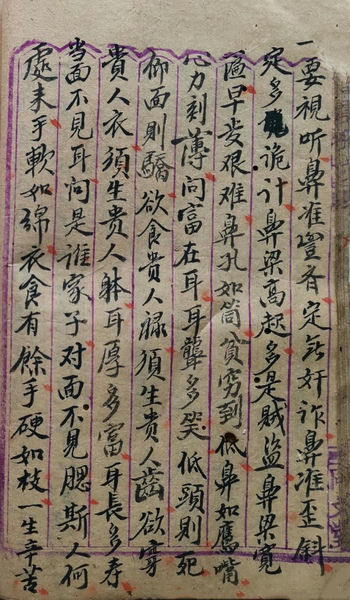 一要視听鼻准豐者定無奸诈鼻准歪斜
定多詭计鼻梁高起多是賊盜鼻梁寬
匾早歩艰难鼻孔如筒貧穷到低鼻如鷹嘴
心力刻薄问富在耳耳聾多癸低頭則死
仰面則驕欲食貴人禄須生貴人齒欲穿
貴人衣須生貴人躰耳厚多富耳長多寿
当面不見耳问是谁家子对面不見腮斯人何
處来手軟如綿衣食有餘手硬如枝一生辛苦